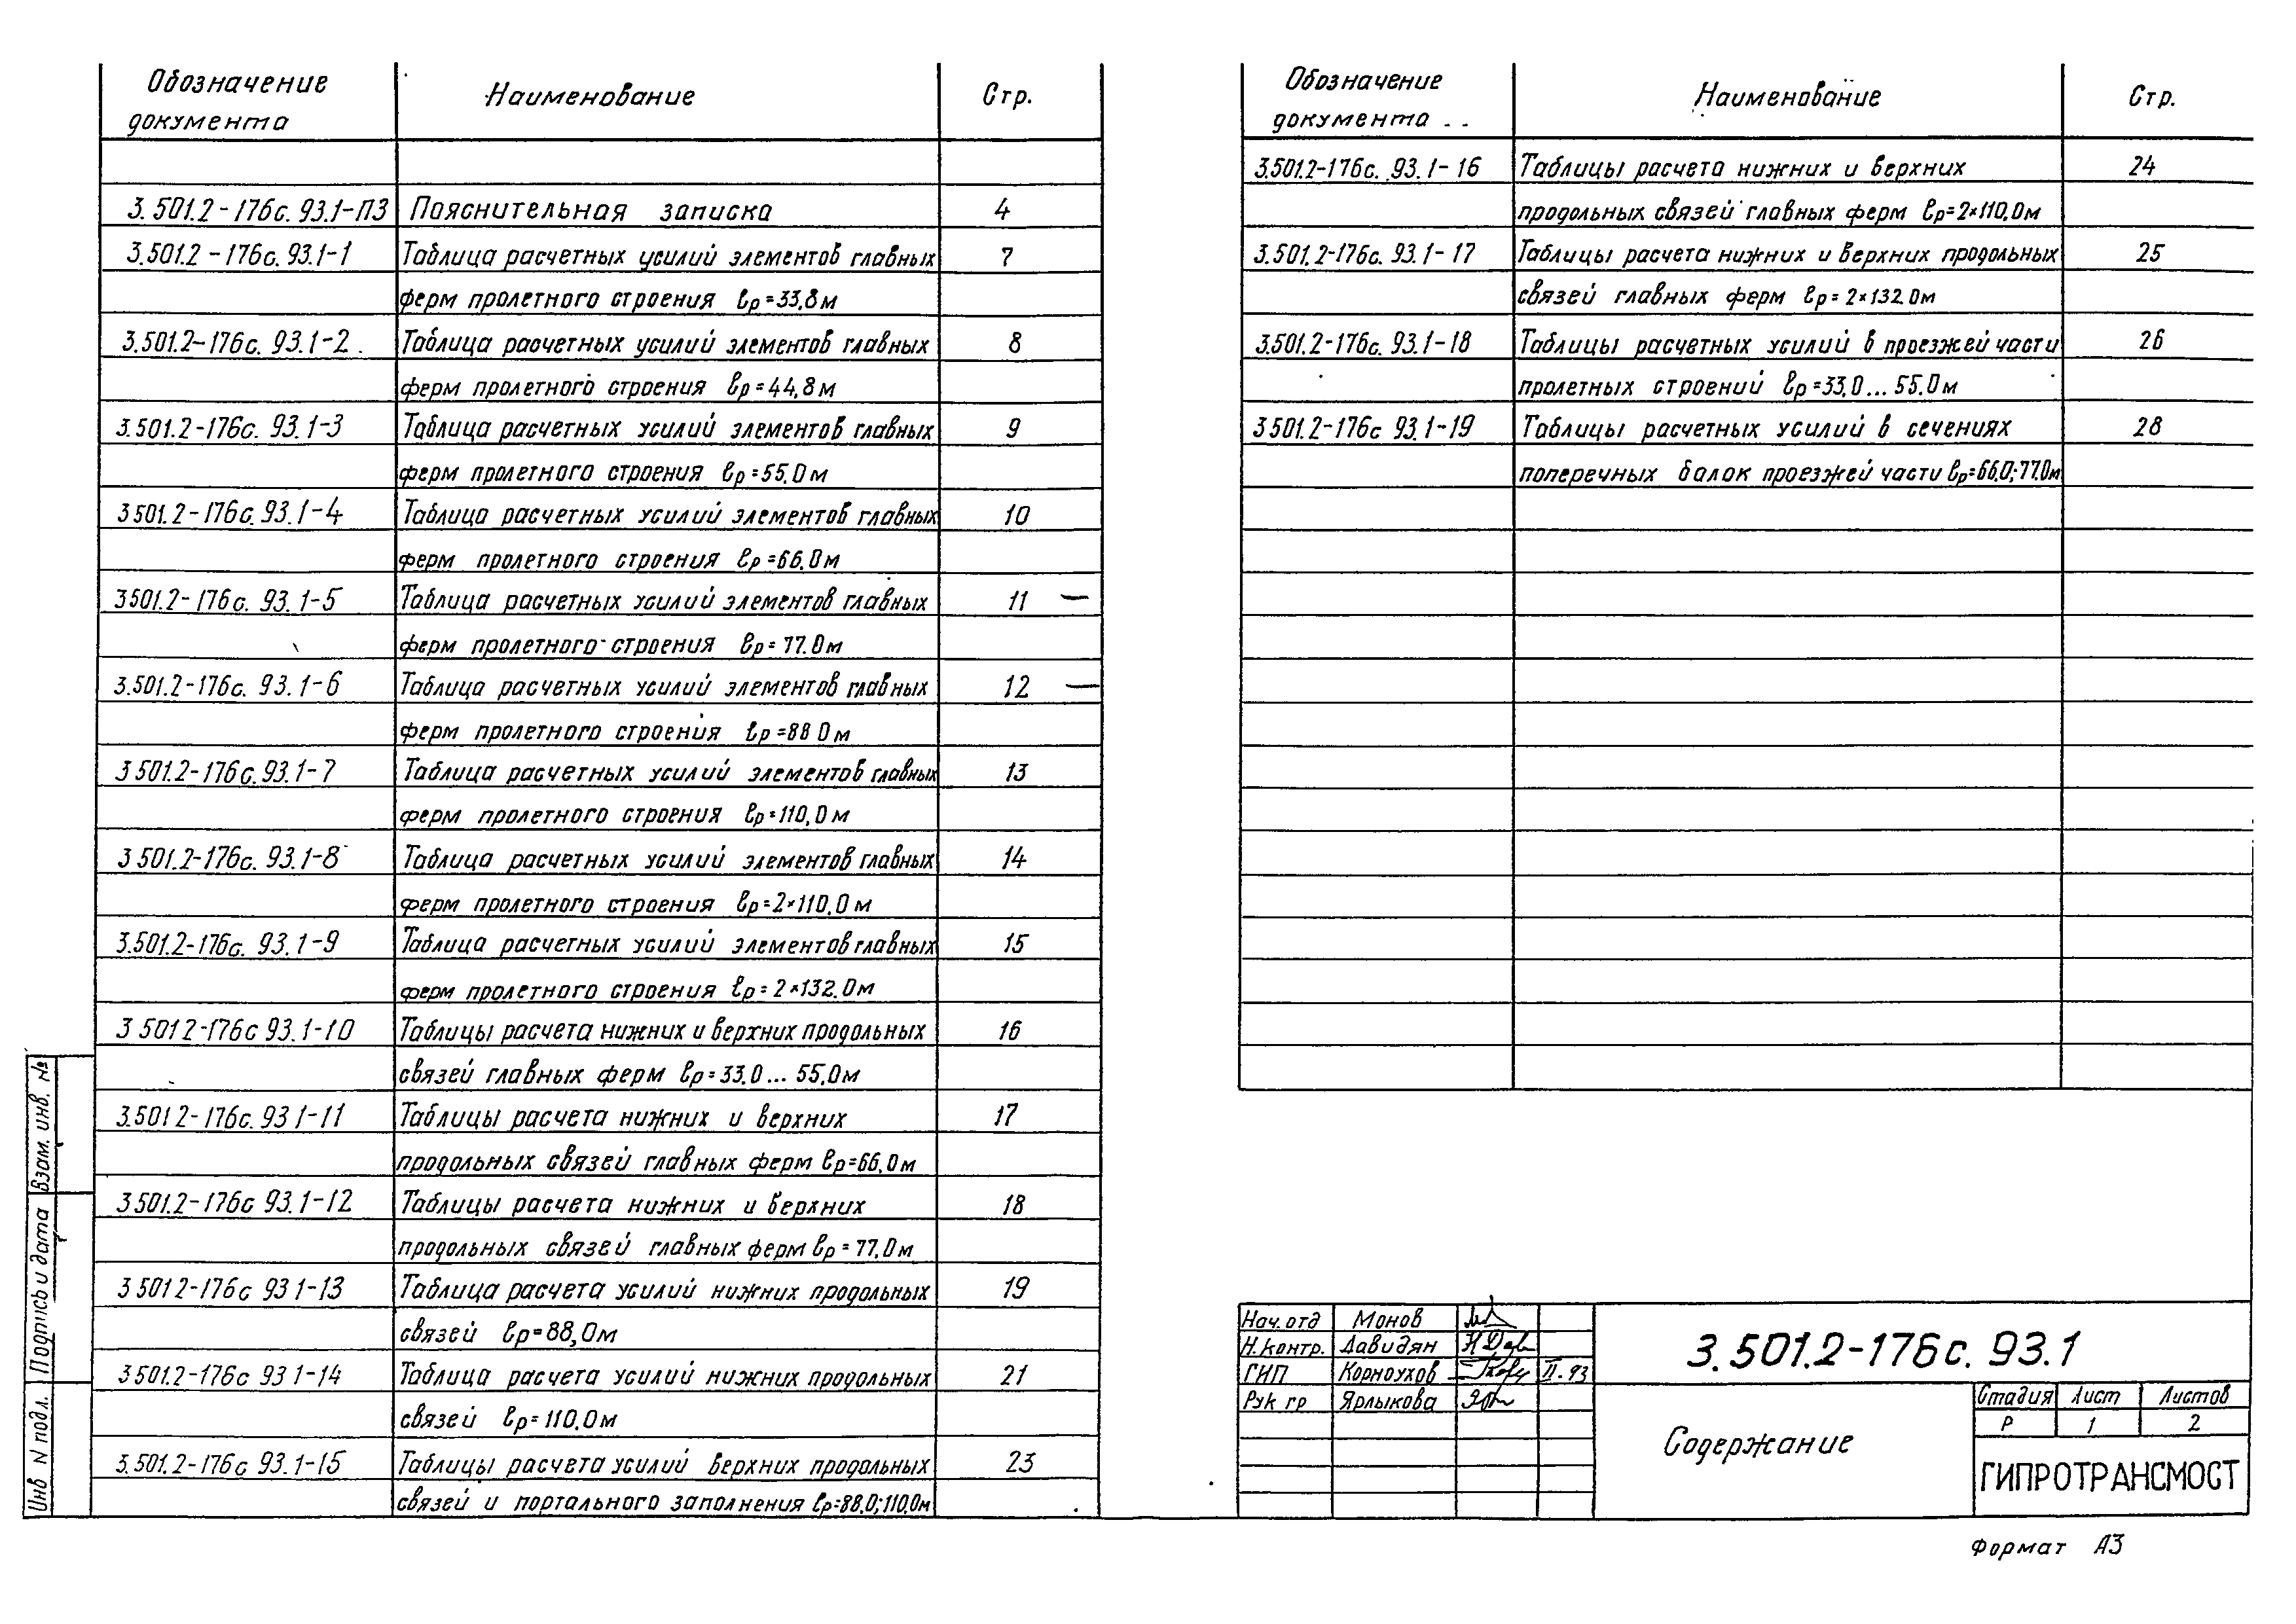 Обозначение документа Наименование Стр.
3.501.2-176с.93.1-ПЗ Пояснительная записка 4
3.501.2-176с.93.1-1 Таблица расчетных усилий элементов главных 7
ферм пролетного строения ℓр=33,8м
3.501.2-176с.93.1-2 Таблица расчетных усилий элементов главных 8
ферм пролетного строения ℓр=44,8м
3.501.2-176с.93.1-3 Таблица расчетных усилий элементов главных 9
ферм пролетного строения ℓр=55.0м
3 501.2-176с.93.1-4 Таблица расчетных усилий элементов главных 10
ферм пролетного строения ℓр=66.0м
3501.2-176с.93.1-5 Таблица расчетных усилий элементов главных 11
ферм пролетного строения ℓр=77.0м
3.501.2-176с.93.1-6 Таблица расчетных усилий элементов главных 12
ферм пролетного строения ℓр=88 0м
3 501.2-176с.93.1-7 Таблица расчетных усилий элементов главных 13
ферм пролетного строения ℓр=110,0м
3 501.2-176с.93.1-8 Таблица расчетных усилий элементов главных 14
ферм пролетного строения ℓр=2×110.0м
3.501.2-176с.93.1-9 Таблица расчетных усилий элементов главных 15
ферм пролетного строения ℓр=2×132.0м
3 501 2-176с 93.1-10 Таблицы расчета нижних и верхних продольных 16
связей главных ферм ℓр=33.0...55.0м
3.501 2-176с.93 1-11 Таблицы расчета нижних и верхних 17
продольных связей главных ферм ℓр=66,0м
3 501.2-176с 93.1-12 Таблицы расчета нижних и верхних 18
продольных связей главных ферм ℓр=77,0м
3 501 2-176с 93 1-13 Таблица расчета усилий нижних продольных 19
связей ℓр=88,0м
3 501.2-176с 93 1-14 Таблица расчета усилий нижних продольных 21
связей ℓр=110.0м
3.501.2-176с 93.1-15 Таблицы расчета усилий верхних продольных 23
связей и портального заполнения ℓр=88.0;110.0м
Взам. инв. №
Подпись и дата
Инв N подл.
Обозначение документа Наименование Стр.
3.501.2-176с.93.1-16 Таблицы расчета нижних и верхних 24
продольных связей главных ферм ℓр=2×110.0м
3.501.2-176с.93.1-17 Таблицы расчета нижних и верхних продольных 25
связей главных ферм ℓр=2×132.0м
3.501.2-176с.93.1-18 Таблицы расчетных усилий в проезжей части 26
пролетных строений ℓр=33,0...55.0м
3 501.2-176с 93.1-19 Таблицы расчетных усилий в сечениях 28
поперечных балок проезжей части ℓр=66.0;77.0м
Нач. отд Монов
Н.контр. Давидян
ГИП Корноухов II.93
Рук гр Ярлыкова
3.501.2-176с.93.1
Содержание
Стадия Лист Листов
Р 1 2
ГИПРОТРАНСМОСТ
Формат А3